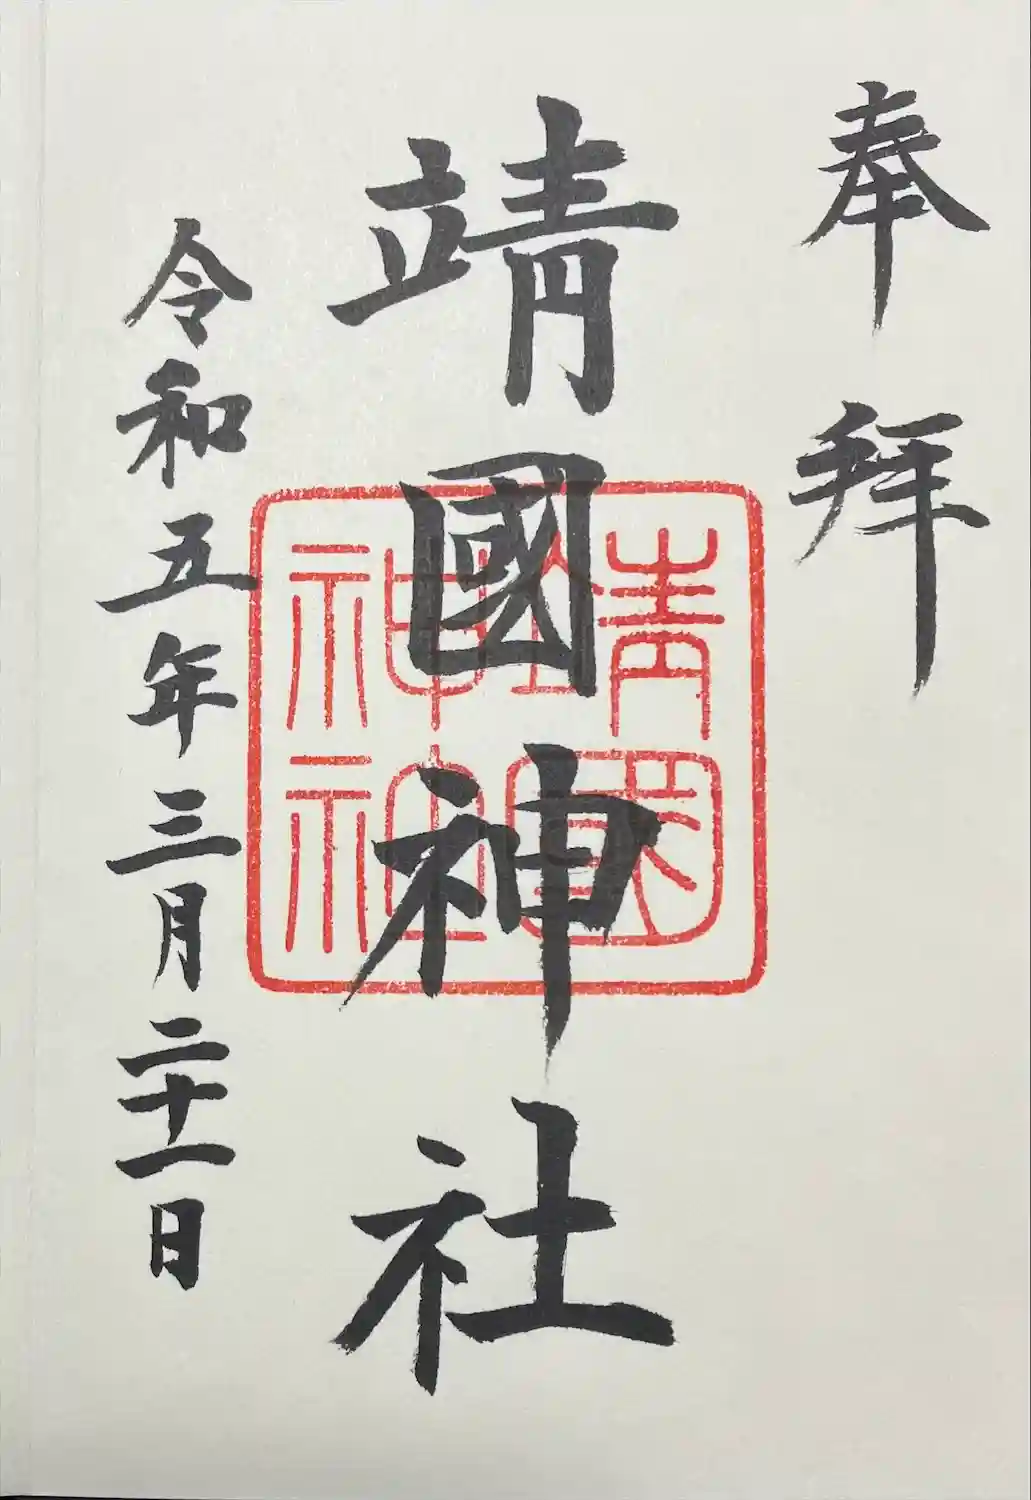 奉拜
靖國神社
靖國神社
令和五年三月二十一日